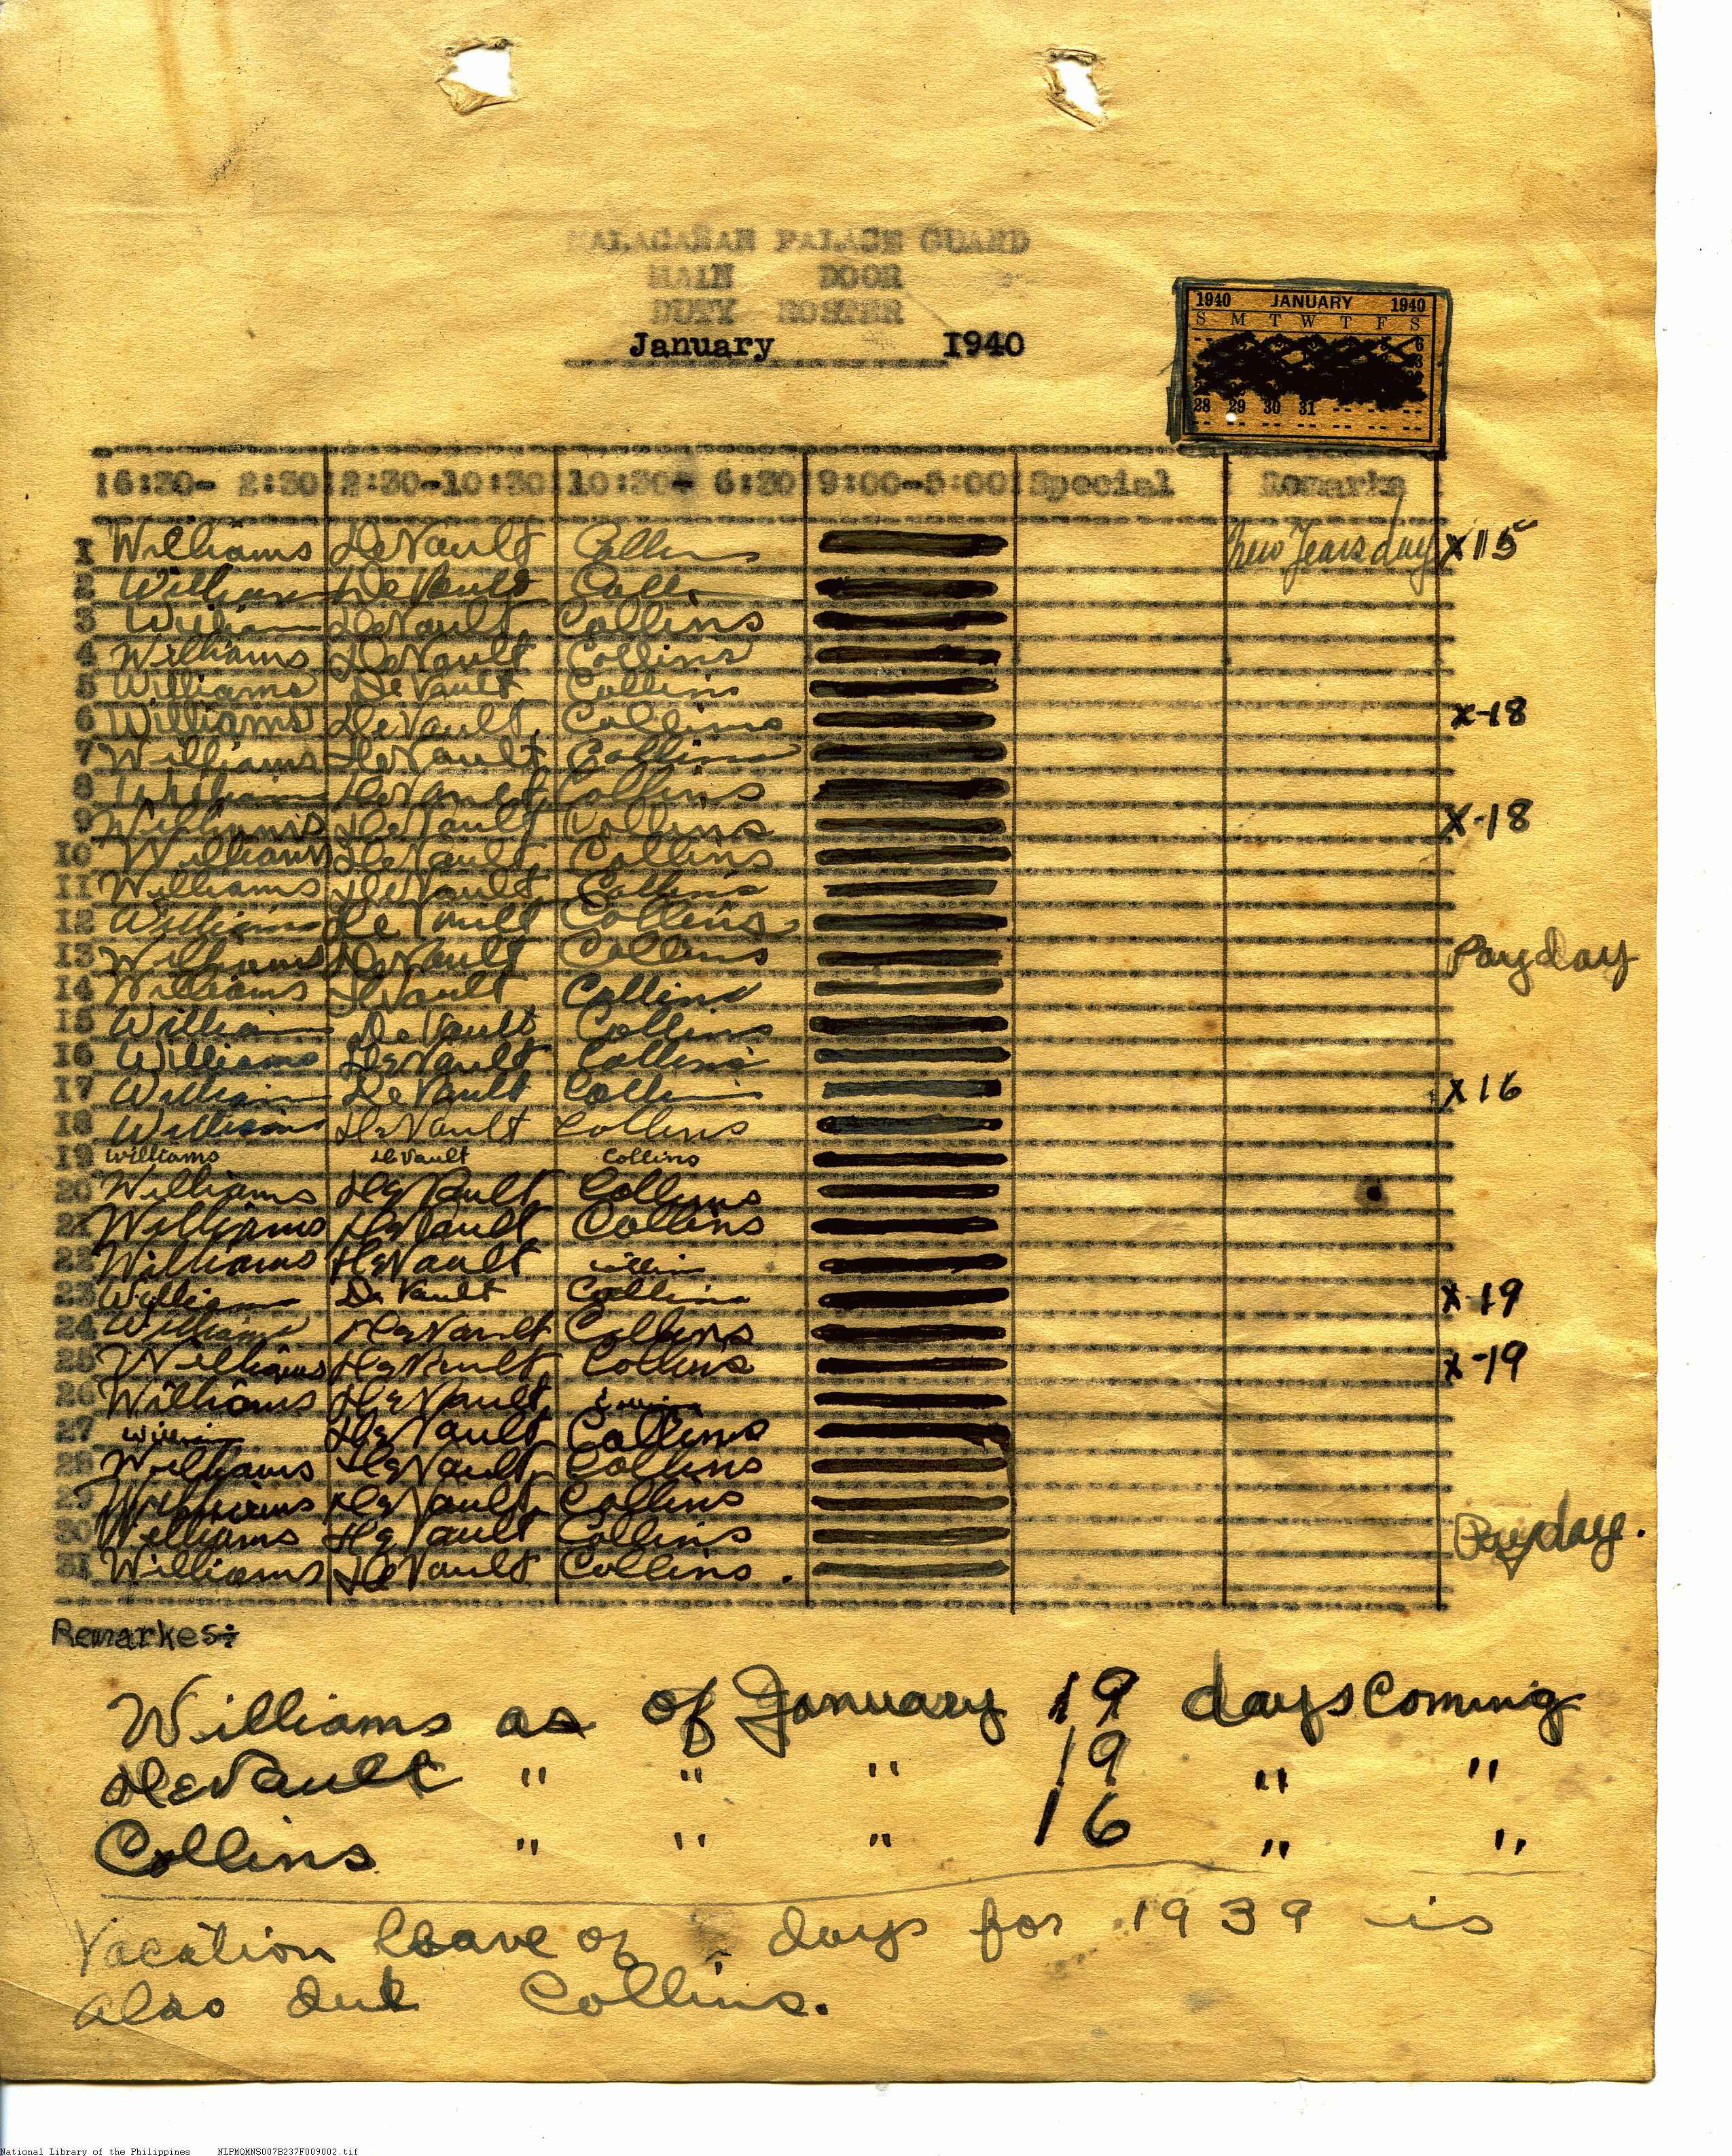 MALACAÑAN PALACE GUARD
MAIN DOOR
DUTY ROSTER
January 1940
1940 JANUARY 1940
S M T W T F S
28 29 30 31 -- -- --
6:30- 2:30 2:30-10:30 10:30- 6:30 9:00-5:00 Special Remarks
1 Williams DeVault Collins New Years day X15
2 Williams DeVault Collins
3 Williams DeVault Collins
4 Williams DeVault Collins
5 Williams DeVault Collins
6 Williams DeVault Collins X-18
7 Williams DeVault Collins
8 Williams DeVault Collins
9 Williams DeVault Collins X-18
10 Williams DeVault Collins
11 Williams DeVault Collins
12 Williams DeVault Collins
13 Williams DeVault Collins Payday
14 Williams DeVault Collins
15 Williams DeVault Collins
16 Williams DeVault Collins
17 Williams DeVault Collins X16
18 Williams DeVault Collins
19 Williams DeVault Collins
20 Williams DeVault Collins
21 Williams DeVault Collins
22 Williams DeVault Collins
23 Williams DeVault Collins X-19
24 Williams DeVault Collins
25 Williams DeVault Collins X-19
26 Williams DeVault Collins
27 Williams DeVault Collins
28 Williams DeVault Collins
29 Williams DeVault Collins
30 Williams DeVault Collins Payday.
31 Williams DeVault Collins.
Remarkes:
Williams as of January 19 days Coming
DeVault " " " 19 " "
Collins " " " 16 " "
Vacation leave of days for 1939 is
also due Collins.
National Library of the Philippines NLPMQMNS007B237F009002.tif